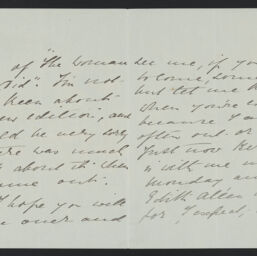 of "The Woman
Did". I'm not
keen about
new edition, and
ld be very sorry
ere was much
about the
me out.
I hope you will
over and
see me, if you
to come, some
but let me
when you're
because I a
often out. or
Just now
is with me
Monday an
Edith Allen
for, I expect,